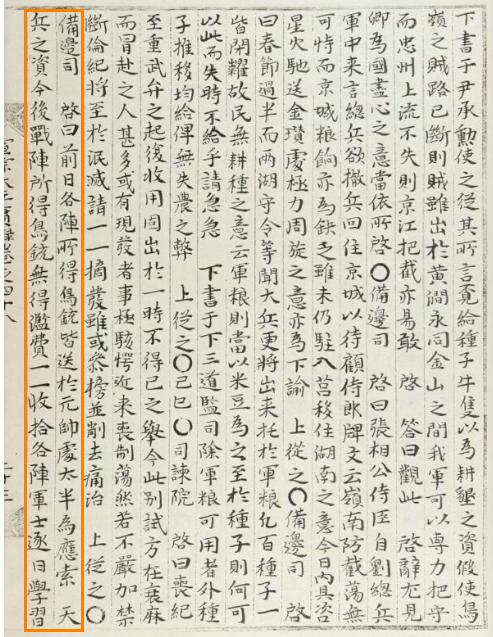 下書于尹承勳使之從其所言覓給種子牛隻以爲耕墾之資假使鳥
嶺之賊路已斷則賊雖出於黃澗永同金山之間我軍可以專力把守
而忠州上流不失則京江把截亦易敢 啓 答曰觀此 啓辭尤見
卿爲國盡心之意當依所啓○備邊司 啓曰張相公侍臣自劉總兵
軍中來言總兵欲撤兵回住京城以待顧侍郎牌文云嶺南防截蕩無
可恃而京城粮餉亦爲缺乏雖未仍駐入莒移住湖南之意今日內具咨
星火馳送金瓚處極力周旋之意亦爲下諭 上從之○備邊司 啓
曰春節過半而兩湖守令等聞大兵更將出來托於軍粮凡百種子一
皆閉糶故民無耕種之意云軍粮則當以米豆爲之至於種子則何可
以此而失時不給乎請急急 下書于下三道監司除軍粮可用者外種
子推移均給俾無失農之弊 上從之○己巳○司諫院 啓曰喪紀
至重武弁之起復收用固出於一時不得已之擧今此別試方在衰麻
而冒赴之人甚多或有現發者事極駭愕近來喪制蕩然若不嚴加禁
斷倫紀將至於泯滅請一一摘發雖或參榜並削去痛治 上從之○
備邊司 啓曰前日各陣所得鳥銃皆送於元帥處太半爲應索 天
兵之資今後戰陣所得鳥銃無得濫費一一收拾各陣軍士逐日學習